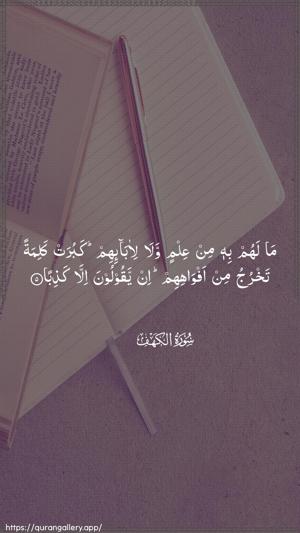 مَا لَهُمْ بِهٖ مِنْ عِلْمٍ وَّلَا لِاٰبَآئِهِمْ ؕ كَبُرَتْ كَلِمَةً
تَخْرُجُ مِنْ اَفْوَاهِهِمْ ؕ اِنْ يَّقُوْلُوْنَ اِلَّا كَذِبًا ۵
سُوْرَةُ الْكَهْفِ
https://qurangallery.app/